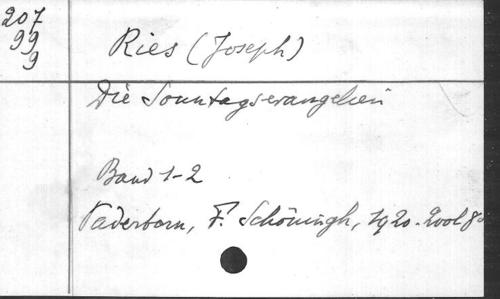 207
99
9
Ries (Joseph)
Die Sonntagsevangelien
Band 1-2
Paderborn, F. Schöningh, 1920. 2vol 8°